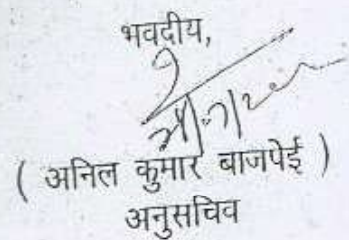 भवदीय,
( अनिल कुमार बाजपेई )
अनुसचिव